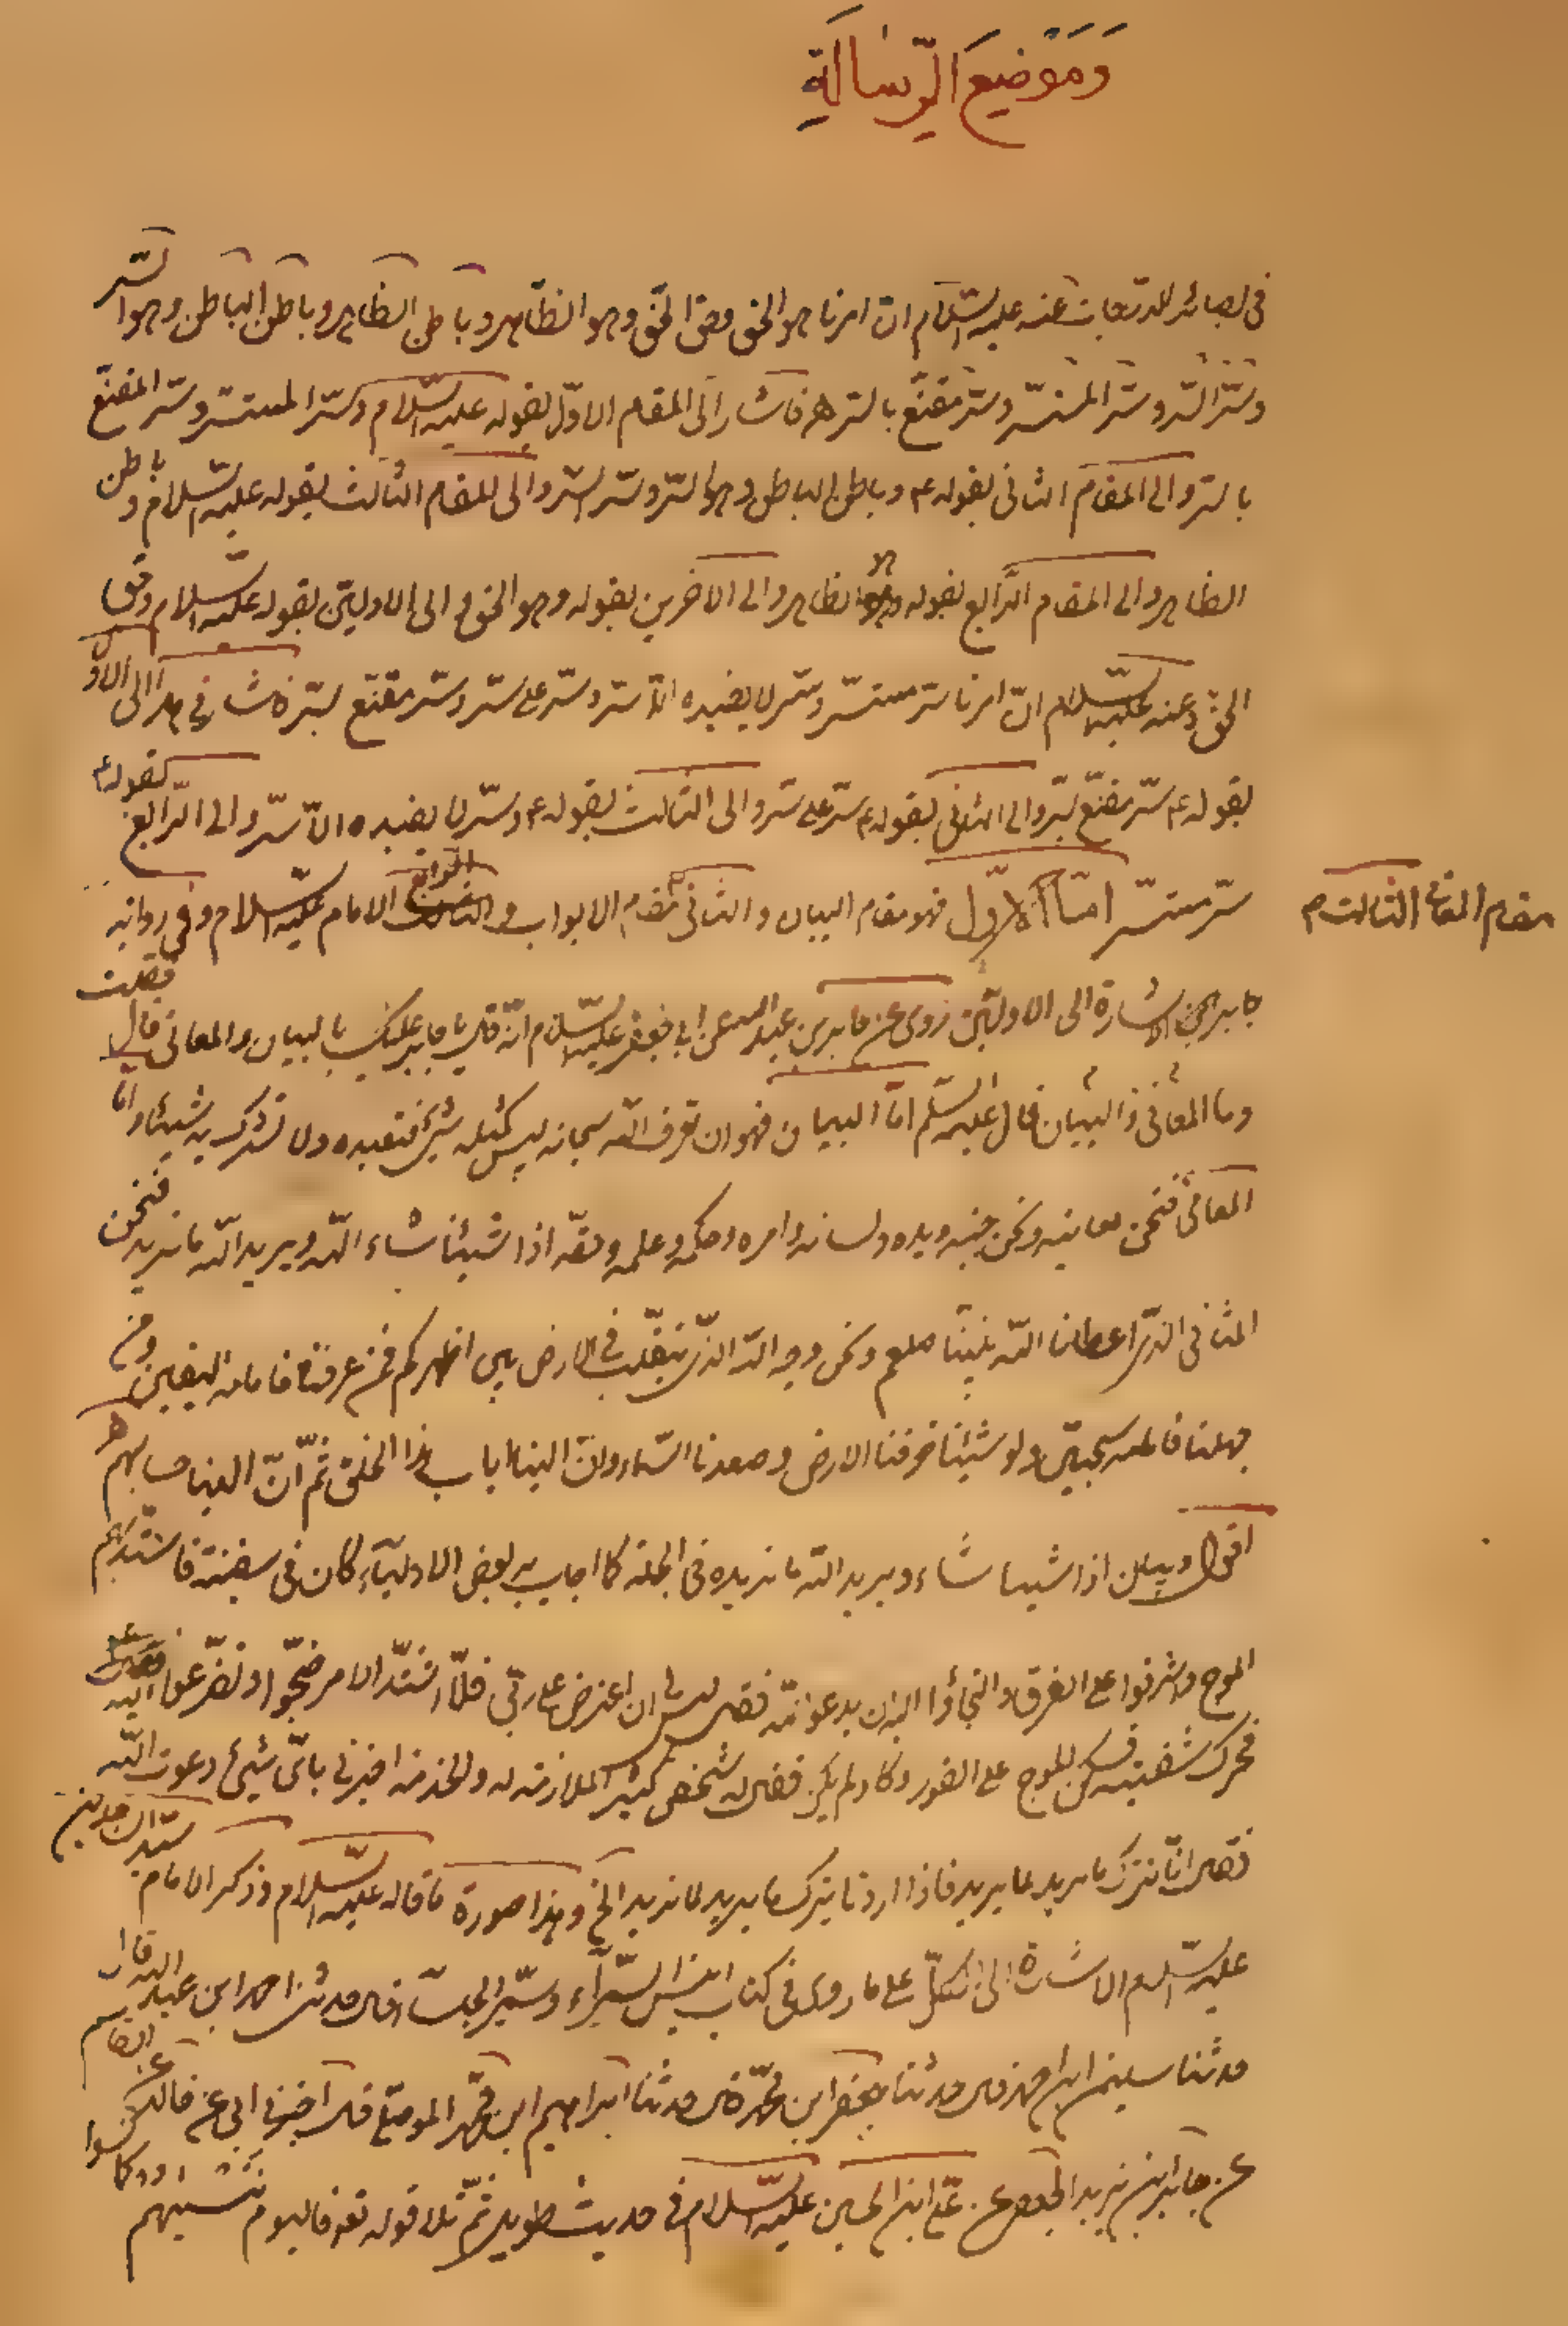 وَمَوْضِعَ الرِّسَالَةِ
في بصائر الدرجات عنه عليه السّلام انّ امرنا هو الحق وحق الحقّ وهو الظّاهر وباطن الظاهر وباطن الباطن وهو السّر
وسرّ السّر وسرّ المستسّر وسرّ مقنّع بالسّر فاشار الى المقام الاوّل بقوله عليه السّلام وسرّ المستسر وسرّ المقنّع
بالسّر والى المقام الثاني بقوله ع وباطن الباطن وهو السّر وسرّ السّر والى المقام الثالث بقوله عليه السّلام وباطن
الظاهر والى المقام الرّابع بقوله هو الظاهر والى الآخرين بقوله وهو الحق والى الاوليّن بقوله عليه السّلام وحق
الحقّ وعنه عليه السّلام انّ امرنا سرّ مستسّر وسّر لا يفيده الّا سّر وسّر على سّر وسّر مقنّع بسّر فاشار في هذا الى الاوّل
بقوله ع سّر مقنّع بسّر والى الثاني بقوله ع سّر على سّر والى الثالث بقوله ع وسّر لا يفيده الّا سّر والى الرّابع بقوله ع
سّر مستسّر امّا الاوّل فهو مقام البيان والثاني مقام الابواب والرابع الامام عليه السّلام وفي رواية
مقام المعاني الثالث م
جابر الاشارة الى الاوليّن روى عن جابر بن عبد الله عن ابي جعفر عليه السّلام انّه قال يا جابر عليك بالبيان والمعاني قال فقلت
وما المعاني والبيان فقال عليه السّلم امّا البيان فهو ان تعرف الله سبحانه ليس كمثله شئ فتعبده ولا تشرك به شيئا وامّا
المعاني فنحن معانيه ونحن جنبه ويده ولسانه وامره وحكمه وعلمه وحقّه اذا شئنا شاء الله ويريد الله ما نريد فنحن
المثاني الذي اعطانا الله نبيّنا صلعم ونحن وجه الله الذي يتقلّب في الارض بين اظهركم فمن عرفنا فامامه اليقين ومن
جهلنا فامامه سجيّن ولو شئنا خرقنا الارض وصعدنا السّماء وانّ الينا اياب هذا الخلق ثمّ انّ علينا حسابهم
اقول وبيان اذا شئنا شاء ويريد الله ما نريده في الجملة كما اجاب به بعض الاوليآء كان في سفينة فاشتدّ بهم
الموج واشرفوا على الغرق والتجأوا اليه ان يدعو الله فقال ليس لي ان اعترض على ربّي فلمّا اشتدّ الامر ضجّوا وتضرّعوا اليه
فحرك شفتيه فسكن الموج على الفور وكان لم يكن فقال له شخص كثير الملازمة له والخدمة اخبرني بايّ شئ دعوت الله
فقال انّا نترك ما نريد لما يريد فاذا اردنا يترك ما يريد لما نريد الخ وهذا صورة ما قاله عليه السّلام وذكر الامام سيّد الساجدين
عليه السّلام الاشارة الى الكلّ على ما روى في كتاب انيس السّمرآء وسمير الجلسآء قال حدثنا احمد ابن عبد الله قال
حدثنا سليمن ابن احمد قال حدثنا جعفر ابن محمّد قال حدثنا ابراهيم ابن محمّد الموصلي قال اخبرني ابي عن خالد عن القاسم
عن جابر ابن يزيد الجعفي عن علي ابن الحسين عليه السّلام في حديث طويل ثمّ تلا قوله تعه فاليوم ننسيهم كما نسوا